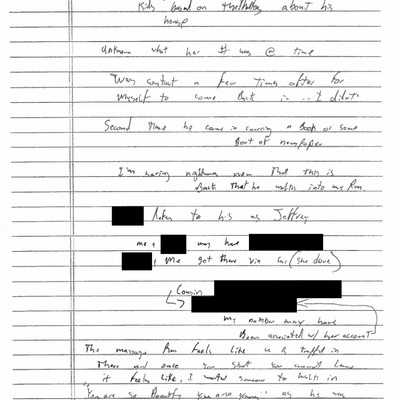 Kids based on            about his
house
Unknown what her # was @ time
Was contact a few times after for
myself to come back in ... I didn't
Second time he came in carrying a Book or some
Sort of newspaper
I'm having nightmares now That this is
Back That he walks into my Rm.
to his as Jeffrey
me + may have
+ me got there via car (she drove)
Cousin
my number may have
Been associated w/ her account
The massage Rm feels like u r trapped in
There and once you start you cannot leave
it feels like, I wanted someone to walk in
"You are so Beautiful you are young" as he was